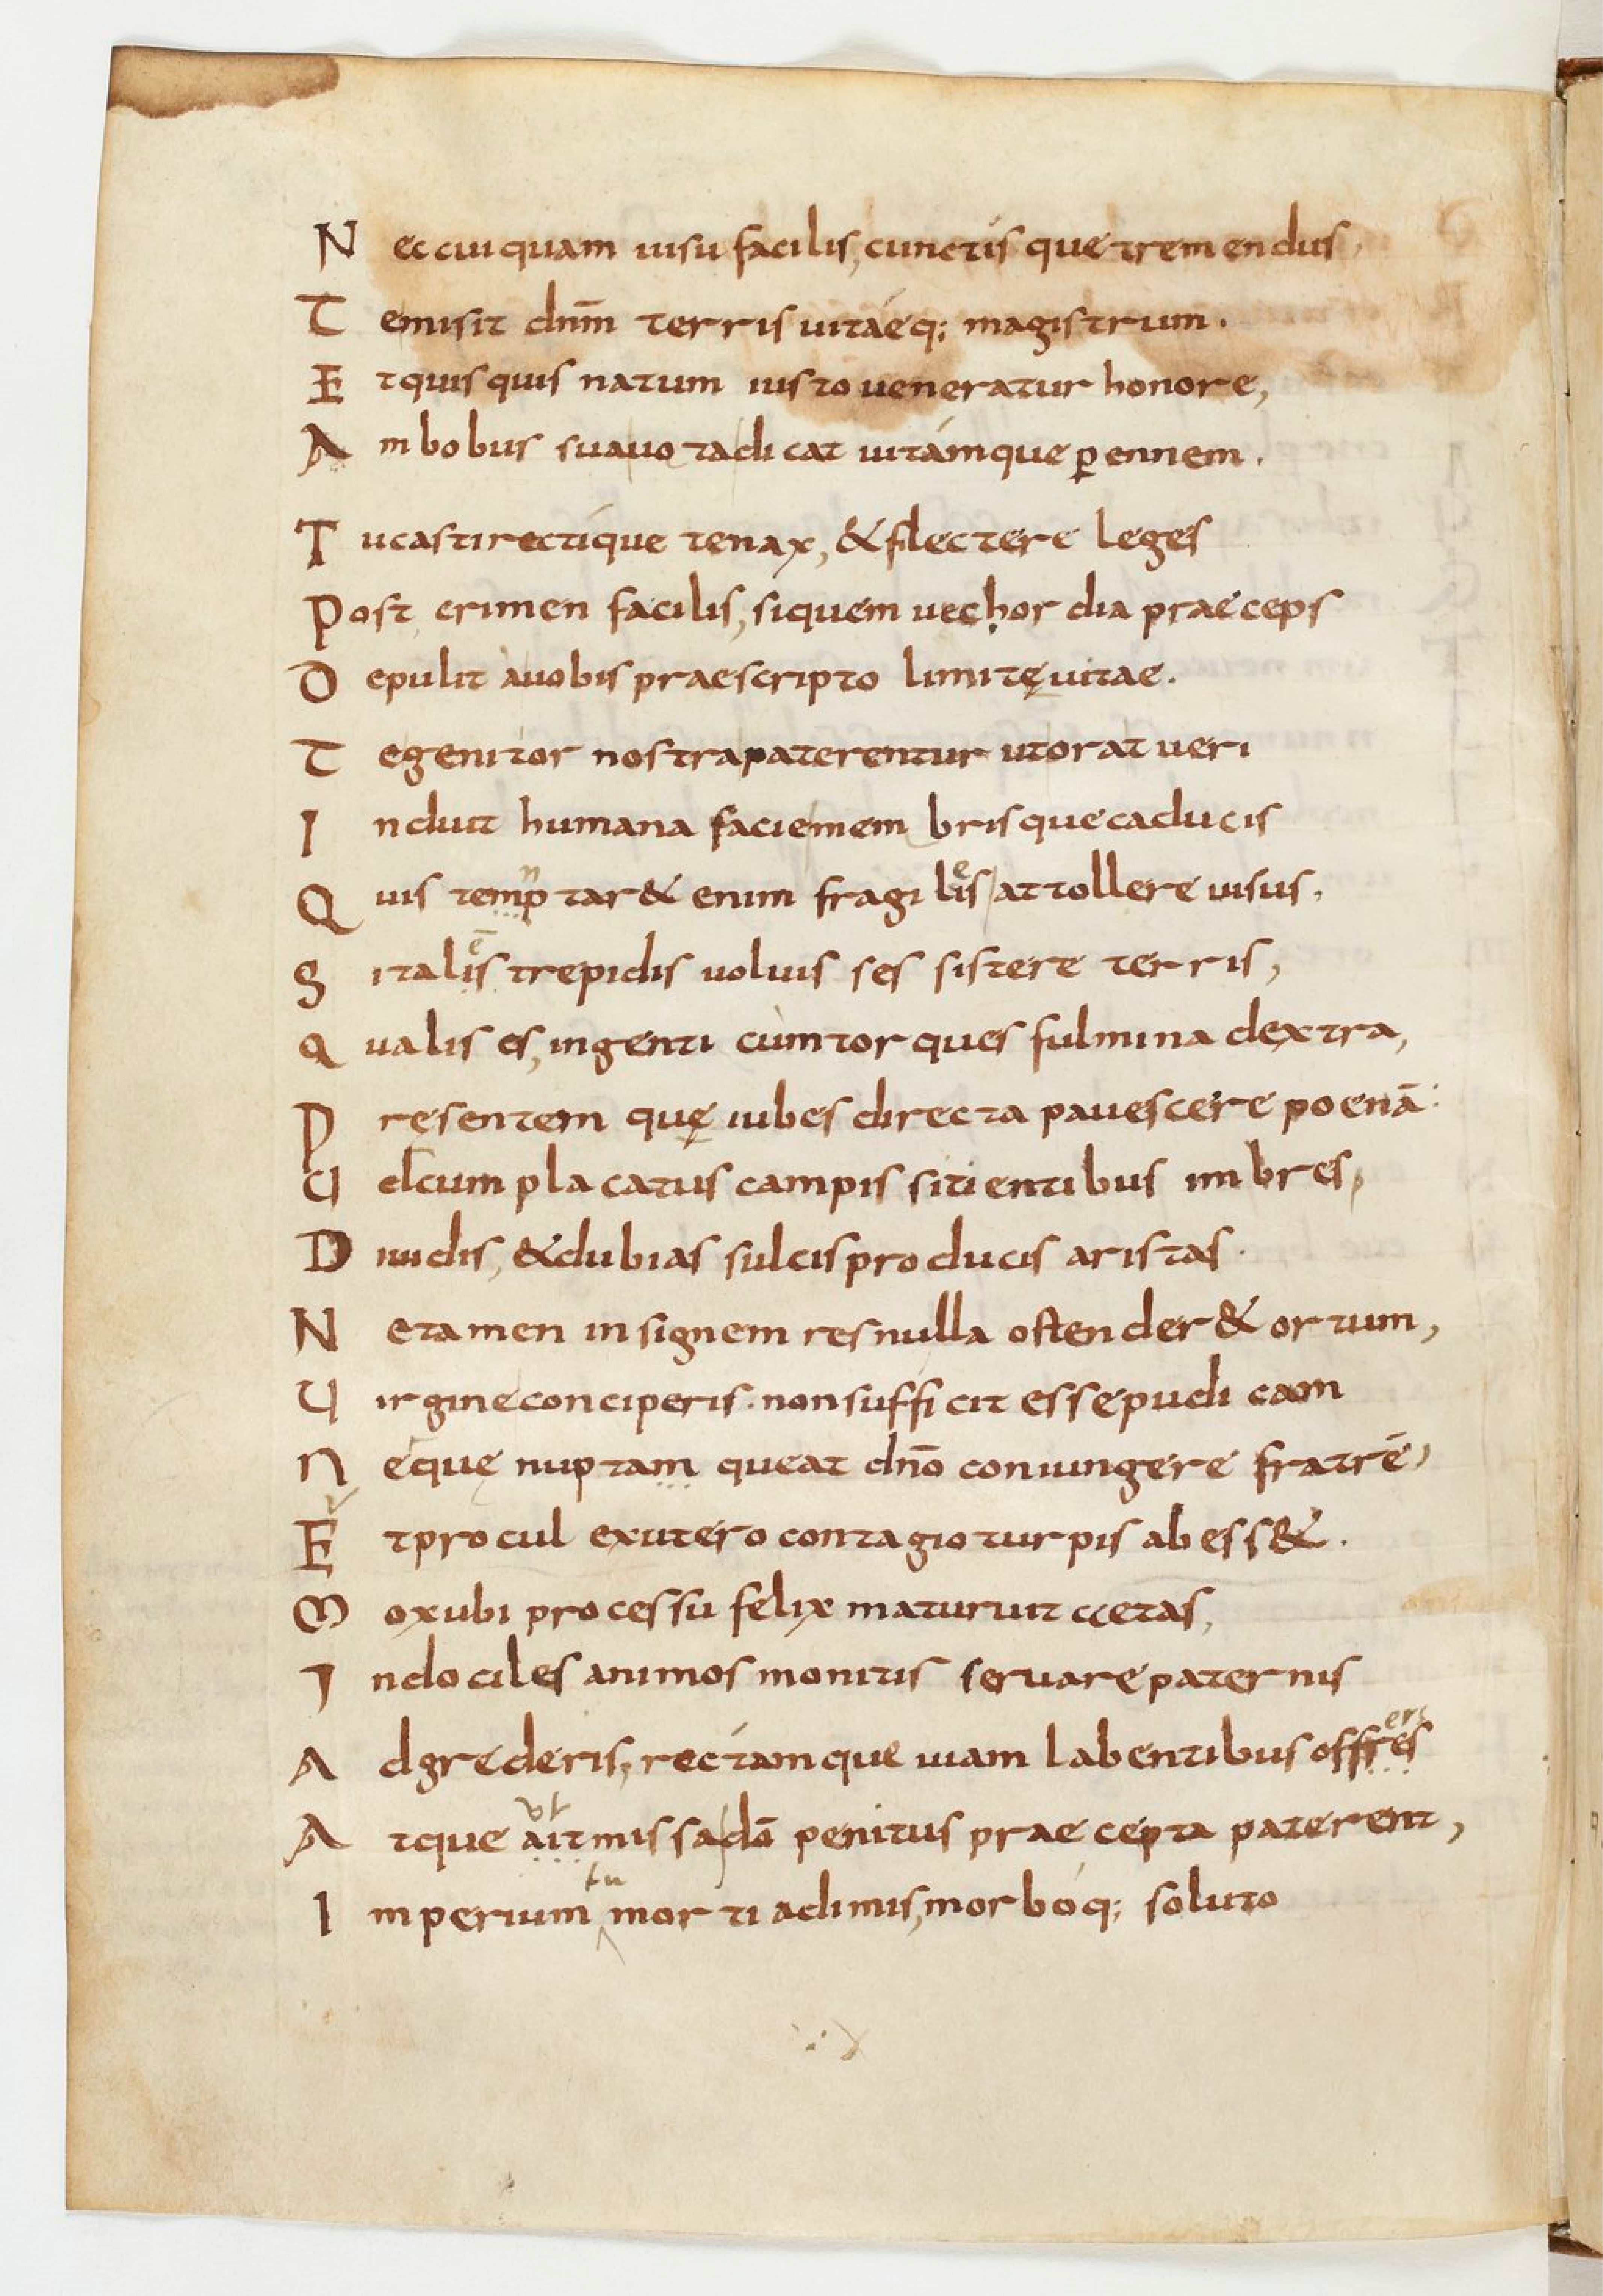 Nec cuiquam uisu facilis, cunctis que tremendus,
Te misit dn̄m terris uitáeq; magistrum.
Et quisquis natum iusto ueneratur honore,
Ambobus sua uota dicat uitámque ꝑennem.
Tu casti rectíque tenax, & flectere leges
Post crimen facilis, siquem uechordia praeceps
Depulit á uobis praescripto limitę uitae.
Te genitor nostra paterentur ut orat ueri
Induit humana facie membrisque caducis
Quis temp n tar& enim fragilis e attollere uisus.
Si talis ē trepidis uoluisses sistere terris,
Qualis es, ingenti cùm torques fulmina dextra,
Pręsentem quę iubes directa pauescere poenā:
Uel cum placatus campis sitientibus imbres,
Diuidis, & dubias sulcis producis aristas.
Ne tamen insignem res nulla ostender& ortum,
Uirgine conciperis. non sufficit esse pudicam
neque nuptam queat dn̄o coniungere fratrē,
Et procul ex utero contagio turpis abess&.
Mox ubi processu felix maturuit ccetas,
Indociles animos monitis seruare paternis
Adgrederis, rectámque uiam labentibus offres ers
Atque ait missa dō penitus praecepta paterent,
Imperium tu morti adimis, morbóq; soluto